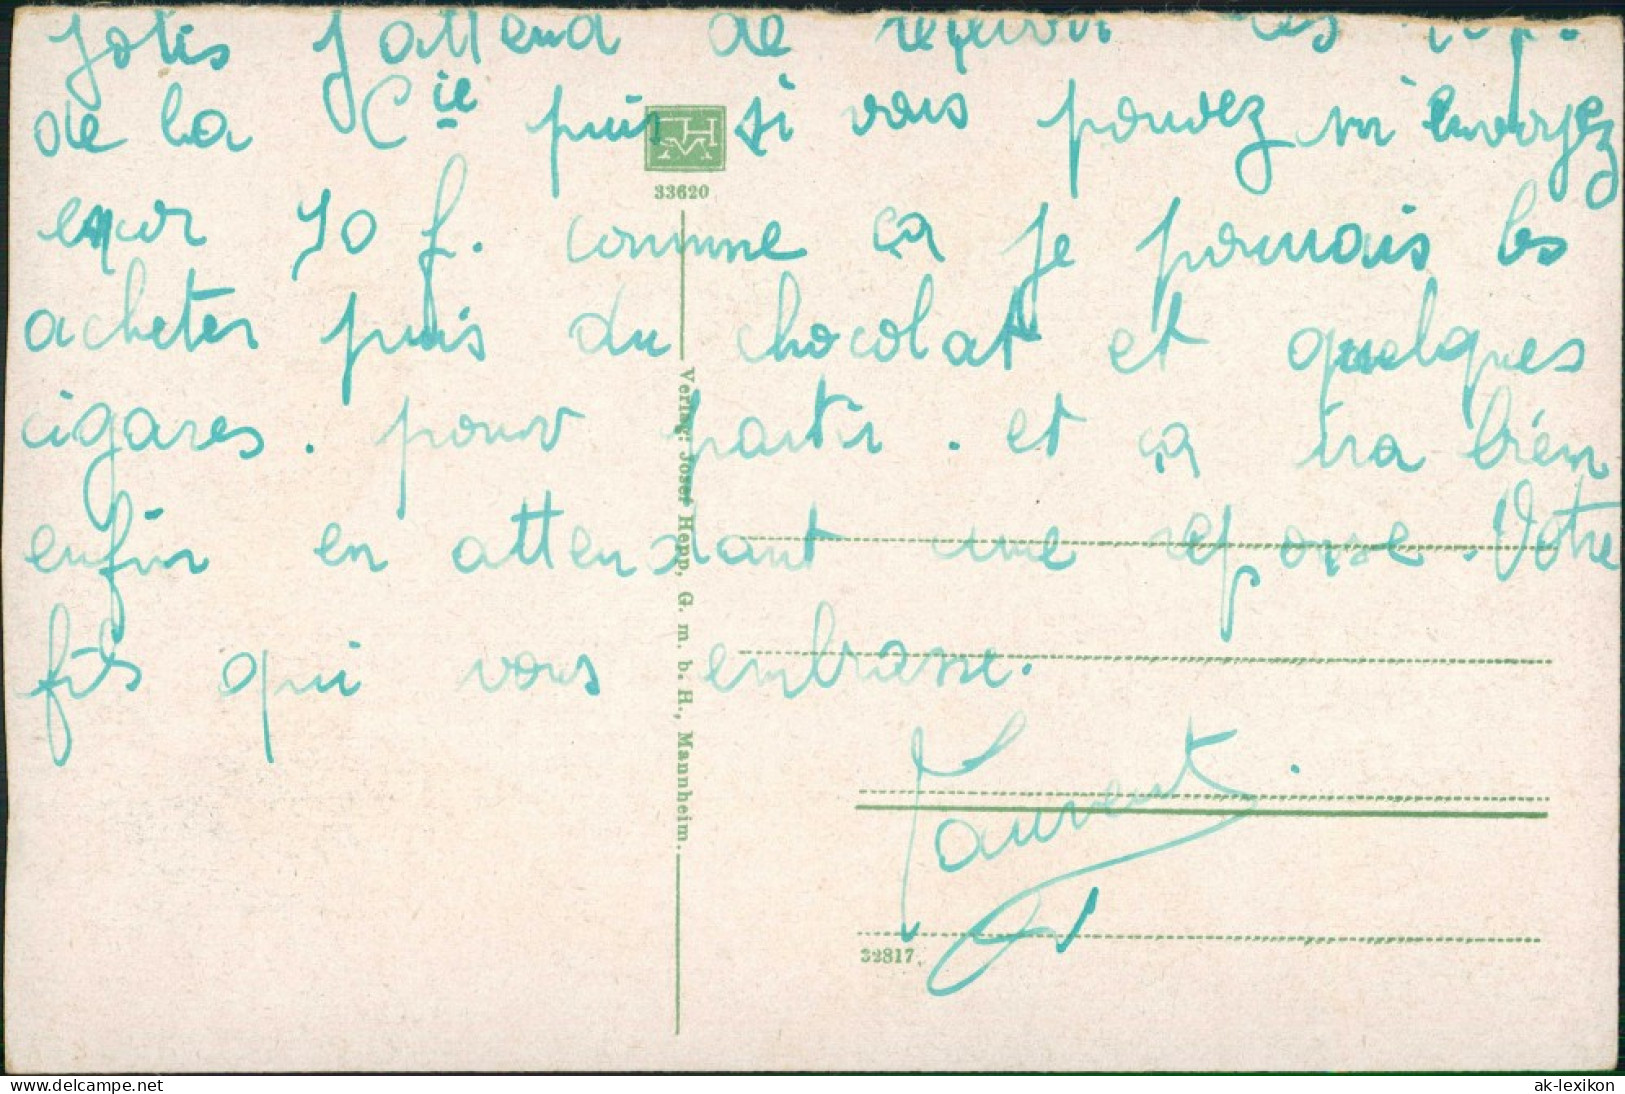 jolis j attend de recevoir les
de la Cie puis si vous pouvez m'envoyez
encor 70 f. comme ça je pourrais les
acheter puis du chocolat et quelques
cigares. pour partir. et ça ira bien
enfin en attendant une reponse. Votre
fils qui vous embrasse.
Laurent
33620
Verlag: Josef Hepp, G. m. b. H., Mannheim.
32817.
www.delcampe.net
ak-lexikon